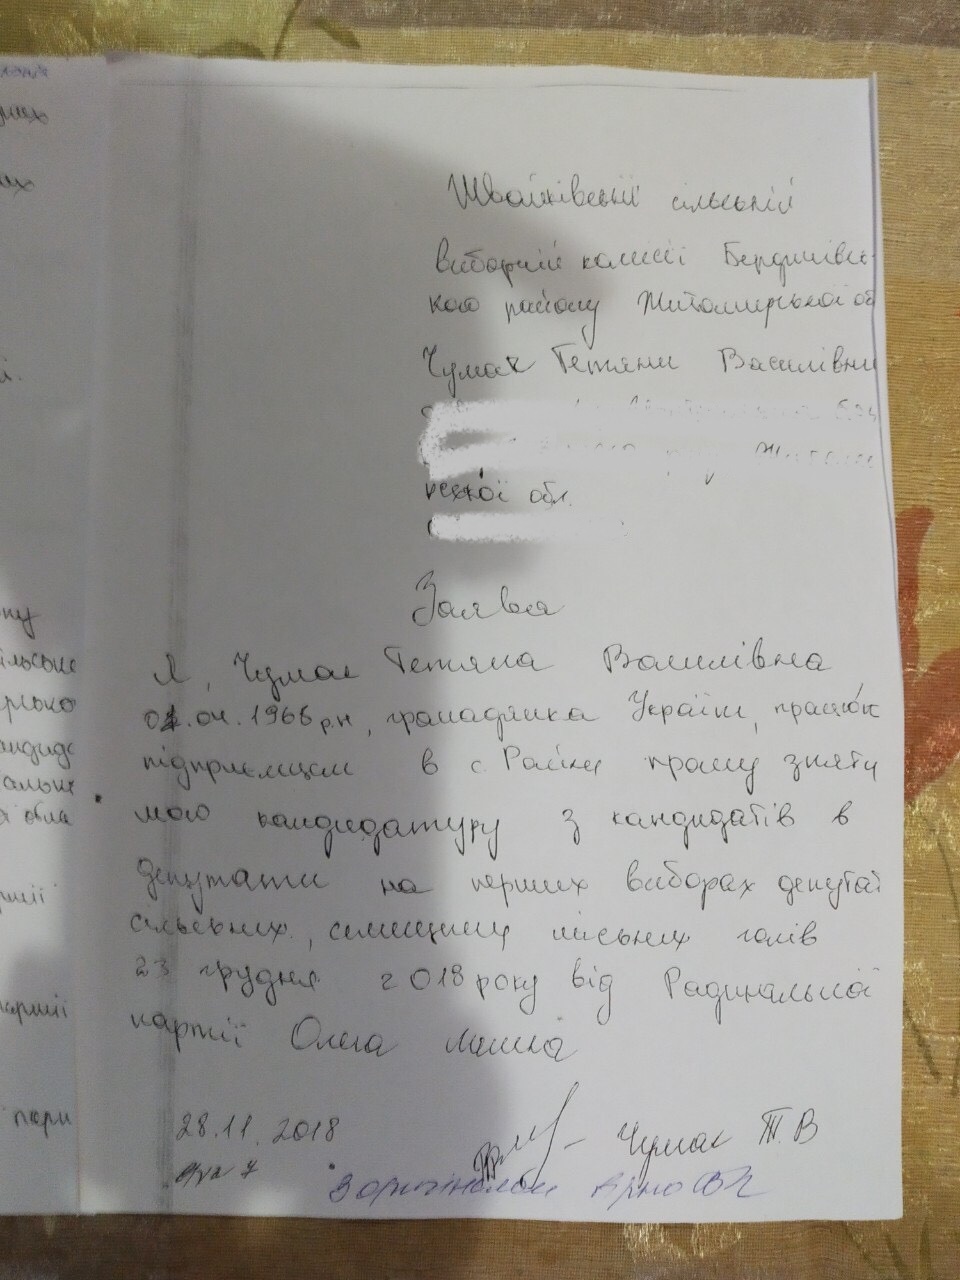 Швайківській сільській
виборчій комісії Бердичівсь-
кого району Житомирської об
Чумак Тетяни Василівни
обл.
Заява
Я, Чумак Тетяна Василівна
.04.1966 р.н, громадянка України, працюю
підприємцем в с. Райки прошу зняти
мою кандидатуру з кандидатів в
депутати на перших виборах депутат
сільських, селищних міських голів
23 грудня 2018 року від Радикальної
партії Олега Ляшка
28.11.2018
Чумак Т В
З оригіналом
ських
ому
сільське
ирсько
кандида
обла
партії